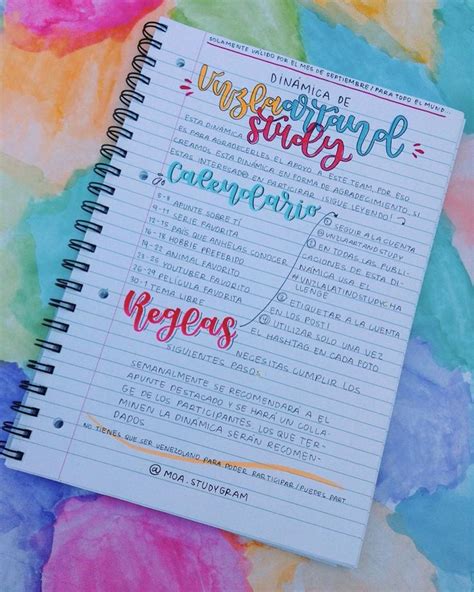 SOLAMENTE VÁLIDO POR EL MES DE SEPTIEMBRE / PARA TODO EL MUND...
DINÁMICA DE
Vnzlaartand
study
ESTA DINÁMICA
ES PARA AGRADECERLES EL APOYO A ESTE TEAM, POR ESO
CREAMOS ESTA DINÁMICA EN FORMA DE AGRADECIMIENTO, SI
ESTAS INTERESAD@ EN PARTICIPAR, ¡SIGUE LEYENDO!
Calendario
5-8 APUNTE SOBRE TÍ
9-11 SERIE FAVORITA
12-15 PAIS QUE ANHELAS CONOCER
16-18 HOBBIE PREFERIDO
19-22 ANIMAL FAVORITO
23-25 YOUTUBER FAVORITO
26-29 PELÍCULA FAVORITA
30-1 TEMA LIBRE
① SEGUIR A LA CUENTA
@VNZLAARTANDSTUDY
② EN TODAS LAS PUBLI-
CACIONES DE ESTA DI-
NÁMICA USA EL
#VNZLALATINOSTUDYCHA
LLENGE
③ ETIQUETAR A LA CUENTA
EN LOS POSTS
④ UTILIZAR SOLO UNA VEZ
EL HASHTAG EN CADA FOTO
Reglas
NECESITAS CUMPLIR LOS
SIGUIENTES PASOS
SEMANALMENTE SE RECOMENDARA EL
APUNTE DESTACADO Y SE HARÁ UN COLLA-
GE DE LOS PARTICIPANTES. LOS QUE TER-
MINEN LA DINÁMICA SERÁN RECOMEN-
DADOS
NO TIENES QUE SER VENEZOLANO PARA PODER PARTICIPAR/PUEDEN PART.
@MOA.STUDYGRAM